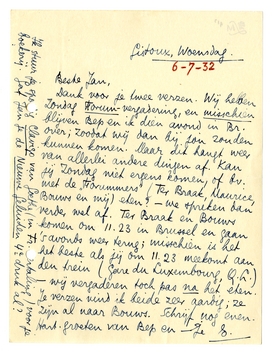 Gistoux, Woensdag.
6-7-32
Beste Jan,
Dank voor je twee verzen. Wij hebben
Zondag Forum-vergadering, en misschien
blijven Bep en ik dien avond in Br.
over; zoodat wij dan bij jou zouden
kunnen komen. Maar dit hangt weer
van allerlei andere dingen af. Kan
jij Zondag niet ergens komen, of bv.
met de Forummers (Ter Braak, Maurice
Bouws en mij) eten? — we spreken dan
verder wel af. Ter Braak en Bouws
komen om 11.23 in Brussel en gaan
's avonds weer terug; misschien is het
het beste als jij om 11.23 meekomt aan
den trein (Gare du Luxembourg, Q.L.)
— wij vergaderen toch pas na het eten.
Je verzen vind ik beide zeer aardig; ze
zijn al naar Bouws. Schrijf nog even.
Hart. groeten van Bep en — Je E.
Ik stuur je op
Gaf Jan je de Nieuwe Geluiden, 4e druk, al?